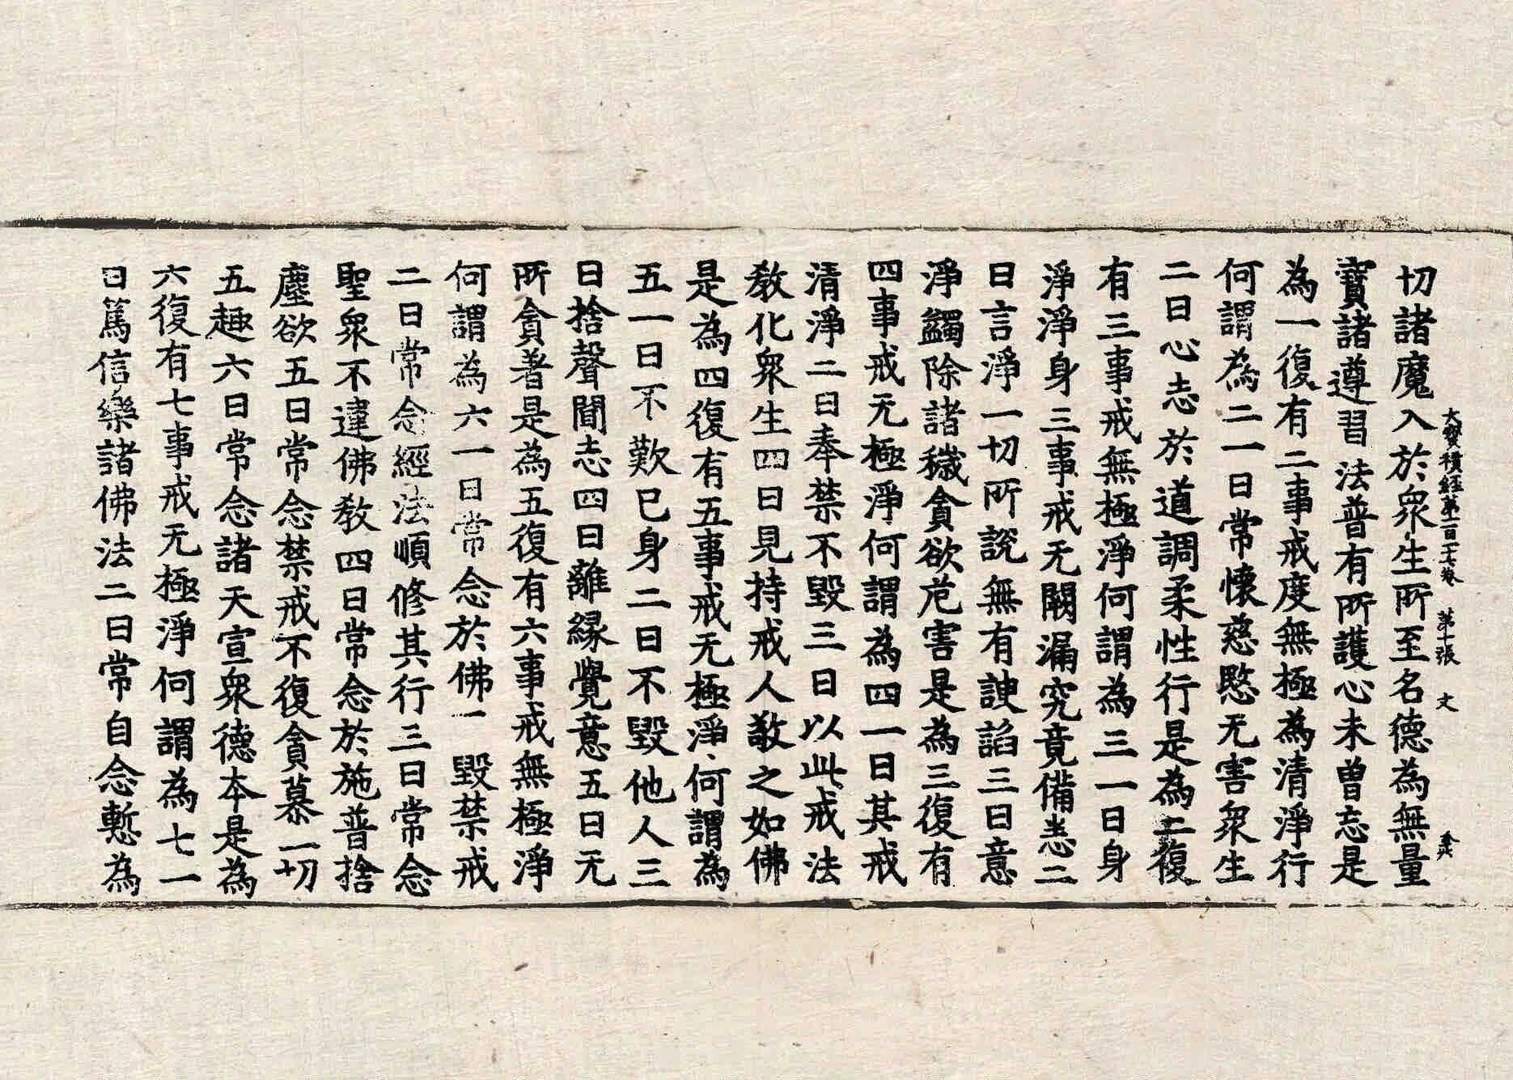 大寶積經第一百一十七卷　第十張　文
切諸魔入於衆生所至名德為無量
寶諸遵習法普有所護心未曾忘是
為一復有二事戒度無極為清淨行
何謂為二一日常懷慈愍无害衆生
二曰心志於道調柔性行是為二復
有三事戒無極淨何謂為三一日身
淨淨身三事戒无闕漏究竟備悉二
日言淨一切所說無有諛諂三日意
淨蠲除諸穢貪欲危害是為三復有
四事戒无極淨何謂為四一日其戒
清淨二日奉禁不毀三日以此戒法
教化衆生四日見持戒人敬之如佛
是為四復有五事戒无極淨何謂為
五一日不歎已身二日不毀他人三
日捨聲聞志四日離緣覺意五日无
所貪著是為五復有六事戒無極淨
何謂為六一日常念於佛一毀禁戒
二日常念經法順修其行三日常念
聖衆不違佛教四日常念於施普捨
塵欲五日常念禁戒不復貪慕一切
五趣六日常念諸天宣衆德本是為
六復有七事戒无極淨何謂為七一
日篤信樂諸佛法二日常自念慙為